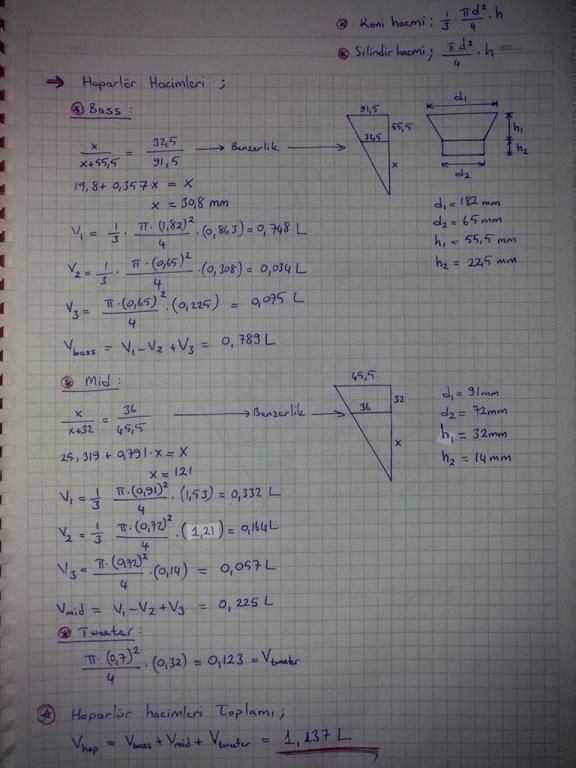 ⊛ Koni hacmi ; 1/3 · πd²/4 · h
⊛ Silindir hacmi ; πd²/4 · h
⇒ Hoparlör Hacimleri ;
⊛ Bass :
x/(x+55,5) = 32,5/91,5 → Benzerlik →
91,5
55,5
32,5
x
d₁
h₁
h₂
d₂
19,8 + 0,357·x = x
x = 30,8 mm
d₁ = 182 mm
d₂ = 65 mm
h₁ = 55,5 mm
h₂ = 22,5 mm
V₁ = 1/3 · π·(1,82)²/4 · (0,863) = 0,748 L
V₂ = 1/3 · π·(0,65)²/4 · (0,308) = 0,034 L
V₃ = π·(0,65)²/4 · (0,225) = 0,075 L
Vbass = V₁ - V₂ + V₃ = 0,789 L
⊛ Mid :
x/(x+32) = 36/45,5 → Benzerlik →
45,5
32
36
x
d₁ = 91mm
d₂ = 72mm
h₁ = 32mm
h₂ = 14mm
25,319 + 0,791·x = x
x = 121
V₁ = 1/3 π·(0,91)²/4 · (1,53) = 0,332 L
V₂ = 1/3 π·(0,72)²/4 · (1,21) = 0,164 L
V₃ = π·(0,72)²/4 · (0,14) = 0,057 L
Vmid = V₁ - V₂ + V₃ = 0,225 L
⊛ Tweeter :
π·(0,7)²/4 · (0,32) = 0,123 = Vtweeter
⊛ Hoparlör hacimleri Toplamı ;
Vhop = Vbass + Vmid + Vtweeter = 1,137 L